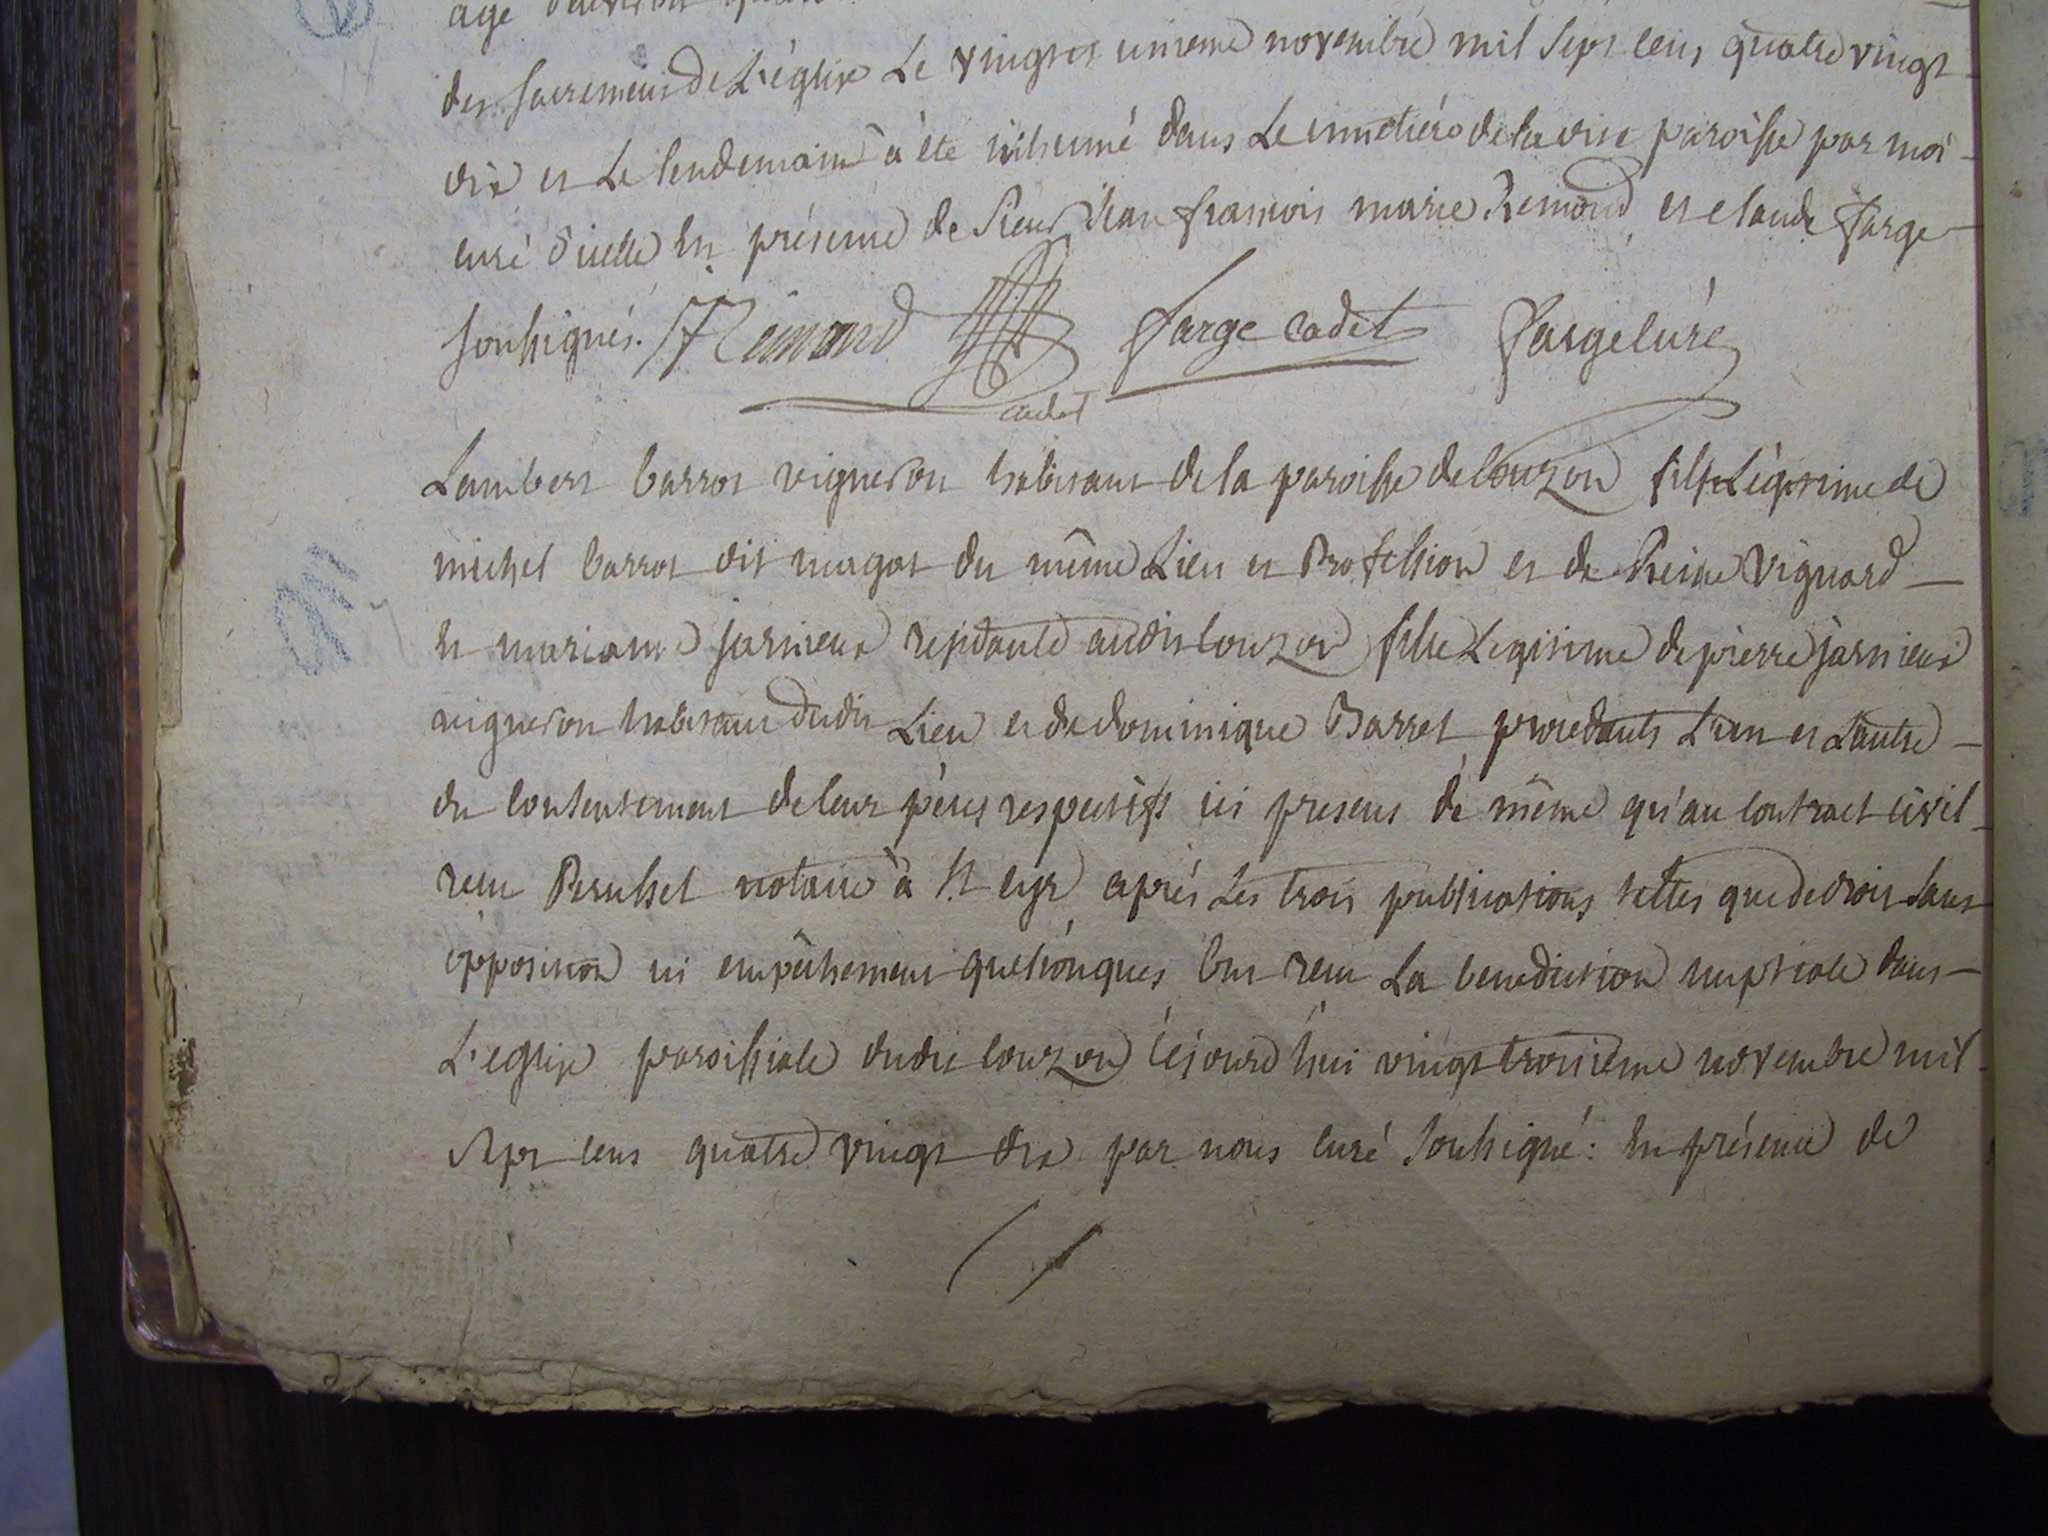 age d'environ
des sacremens de L'église Le vingt et unieme novembre mil sept cens quatre vingt
dix et Le lendemain à été inhumé dans Le cimetiére de la dite paroisse par moi
curé d'icelle en présence de Sieur Jean françois marie Remond et claude farge
soussignés. Remond farge cadet farge curé
cadet
Lambert barrot vigneron habitant de la paroisse de couzon fils Légitime de
michel barrot dit magat du même Lieu et Profession et de Reine Vignard
et mariane jarnieux residante audit couzon fille Legitime de pierre jarnieux
vigneron habitant dudit Lieu et de dominique Barret procedants L'un et L'autre
du consentement de leur péres respectifs ici presens de même qu'au contract civil
recu notaire à St cyr aprés Les trois publications faittes que de droit sans
opposition ni empêchement quelconques ont recu La benediction nuptiale dans
L'eglise paroissiale dudit couzon cejourd'hui vingt troisieme novembre mil
sept cens quatre vingt dix par nous curé soussigné: en présence de